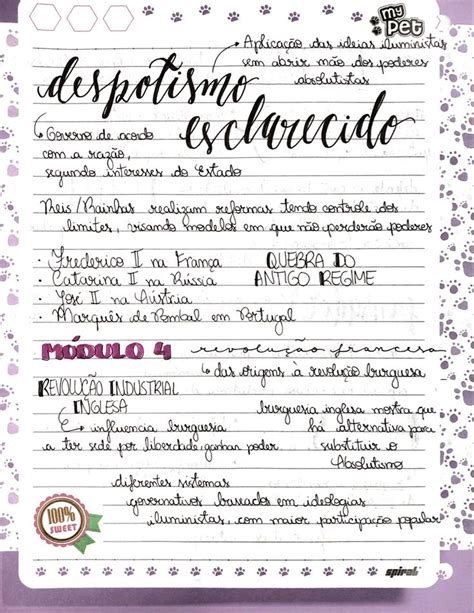 my
Pet
Aplicação das ideias iluministas
sem abrir mão dos poderes
absolutistas
despotismo
esclarecido
Governo de acordo
com a razão,
segundo interesses do Estado
Reis/Rainhas realizam reformas tendo controle dos
limites, visando modelos em que não perderão poderes
· Frederico II na França
· Catarina II na Rússia
· José II na Áustria
· Marquês de Pombal em Portugal
QUEBRA DO
ANTIGO REGIME
MÓDULO 4 revolução francesa
das origens à revolução burguesa
REVOLUÇÃO INDUSTRIAL
INGLESA
influencia burguesia
a ter sede por liberdade; ganhar poder
burguesia inglesa mostra que
há alternativa para
substituir o
Absolutismo
diferentes sistemas
governativos baseados em ideologias
iluministas, com maior participação popular
100%
SWEET
spiral